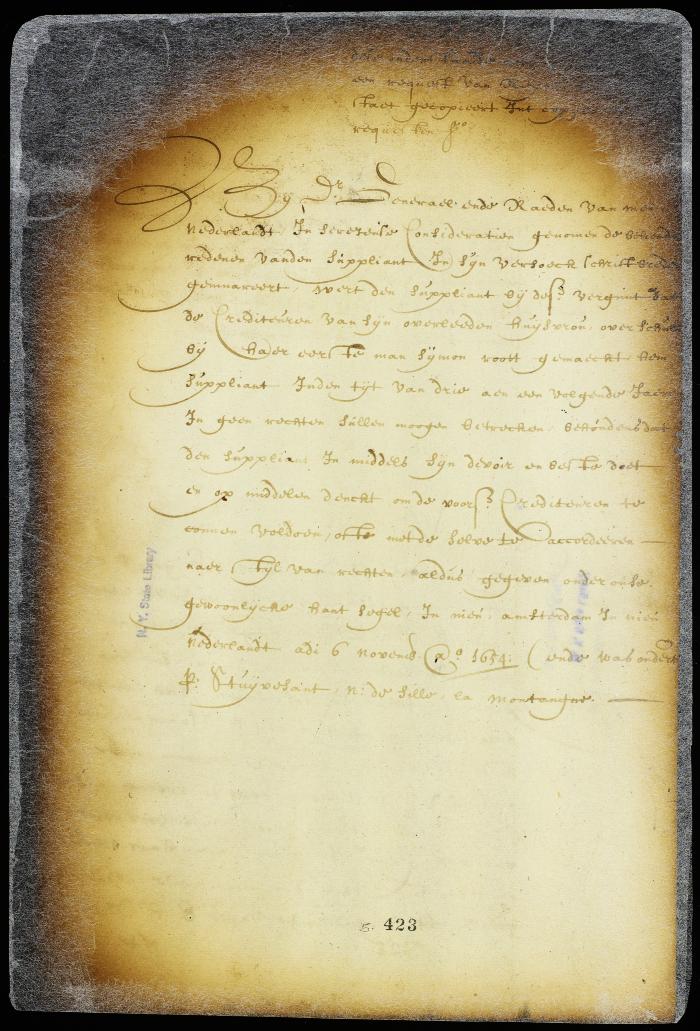 een request van
staet gecopieert Int
requesten fo
Wy Dr. Generael ende Raeden van
Nederlandt, In serieuse Consideratien genomen de
redenen vanden suppliant In sijn versoeck schrift
geinnareert, wert den suppliant bij desen vergunt dat
de Crediteuren van sijn overleeden huijsvrou, over
bij haer eerste man sijmon root gemaeckt, hem
suppliant Inden tijt van drie aen een volgende Jaren
In geen rechten sullen moogen betrecken, behoudens dat
den suppliant In middels sijn devoir en beste doet
en op middelen denckt om de voors. Crediteuren te
connen voldoen, ofte met de selve te accorderen
naer stijl van rechten, aldus gegeven onder onse
gewoonlijcke hant segel, In nieu amsterdam In nieu
Nederlandt adi 6 Novemb Ao 1654: (ende was ondert
P: Stuyvesant, N: de Sille, la Montangne.
N.Y. State Library
423